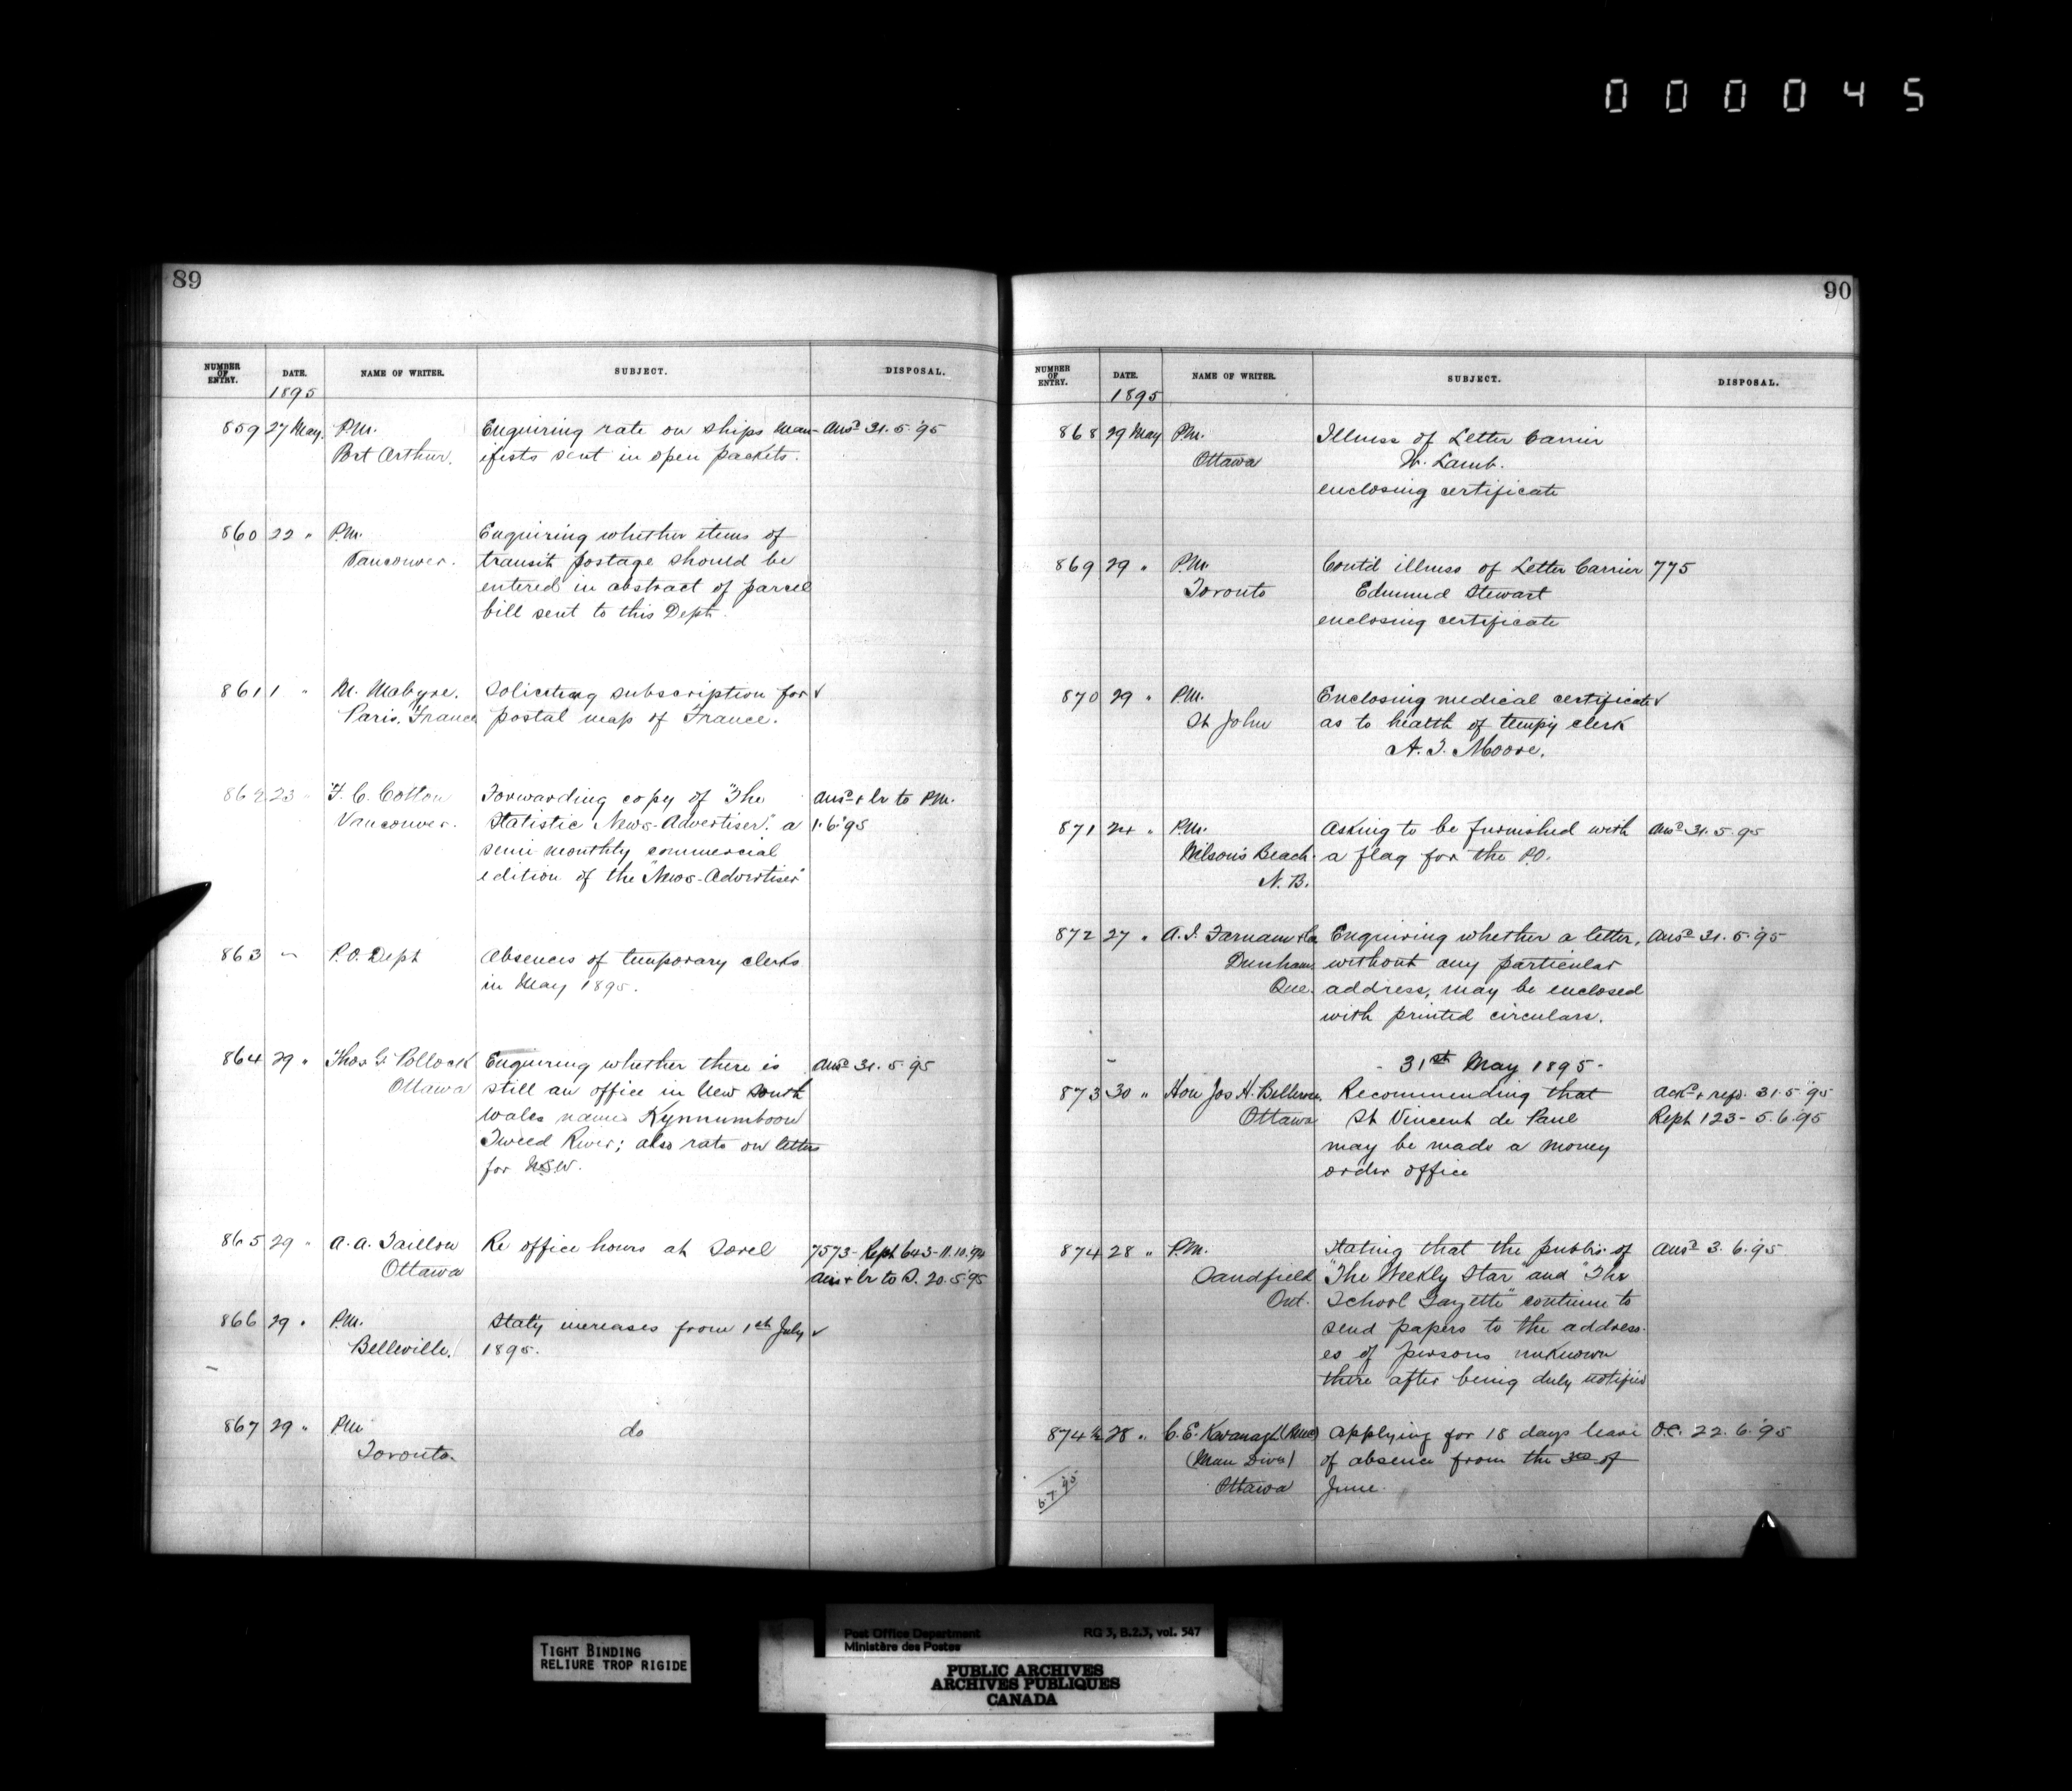 000045
89
NUMBER OF ENTRY. DATE. NAME OF WRITER. SUBJECT. DISPOSAL.
1895
859 27 May. P.M. Enquiring rate on ships man- Ansd 31.5.'95
Port Arthur. ifests sent in open packets.
860 22 " P.M. Enquiring whether items of
Vancouver. transit postage should be
entered in abstract of parcel
bill sent to this Dept.
861 1 " M. Mabyre. Soliciting subscription for ✓
Paris. France postal map of France.
862 23 " F. C. Cotton Forwarding copy of "The Ansd & lr to P.M.
Vancouver. Statistic News-Advertiser". a 1.6.'95
semi monthly commercial
edition of the "News-Advertiser"
863 P.O. Dept Absences of temporary clerks
in May 1895.
864 29 " Thos G. Pollock Enquiring whether there is Ansd 31.5.'95
Ottawa still an office in New South
Wales named Kynnumboon
Tweed River; also rate on letters
for N.S.W.
865 29 " A. A. Taillon Re office hours at Sorel 7573- Rept 643-11.10.'94
Ottawa Ans & lr to S. 20.5.'95
866 29 " P.M. Staty increases from 1st July ✓
Belleville. 1895.
867 29 " P.M. do
Toronto.
90
NUMBER OF ENTRY. DATE. NAME OF WRITER. SUBJECT. DISPOSAL.
1895
868 29 May P.M. Illness of Letter Carrier
Ottawa W. Lamb.
enclosing certificate
869 29 " P.M. Contd illness of Letter Carrier 775
Toronto Edmund Stewart
enclosing certificate
870 29 " P.M. Enclosing medical certificate ✓
St John as to health of tempy clerk
A. T. Moore.
871 24 " P.M. Asking to be furnished with Ansd 31.5.95
Wilson's Beach a flag for the P.O.
N. B.
872 27 " A. J. Farnam & Co Enquiring whether a letter, Ansd 31.5.'95
Dunham, without any particular
Que. address, may be enclosed
with printed circulars.
- 31st May 1895 -
873 30 " Hon Jos H. Bellerose Recommending that Ackd & refd. 31.5.'95
Ottawa St Vincent de Paul Rept 123 - 5.6.'95
may be made a money
order office
874 28 " P.M. Stating that the publrs. of Ansd 3.6.'95
Sandfield "The Weekly Star" and "The
Ont. School Gazette" continue to
send papers to the address-
es of persons unknown
there after being duly notified
874½ 28 " C. E. Kavanagh Applying for 18 days leave O.C. 22.6.'95
of absence from the 3rd of
Ottawa June.
6.7.'95
TIGHT BINDING
RELIURE TROP RIGIDE
Post Office Department RG 3, B.2.3, vol. 547
Ministère des Postes
PUBLIC ARCHIVES
ARCHIVES PUBLIQUES
CANADA